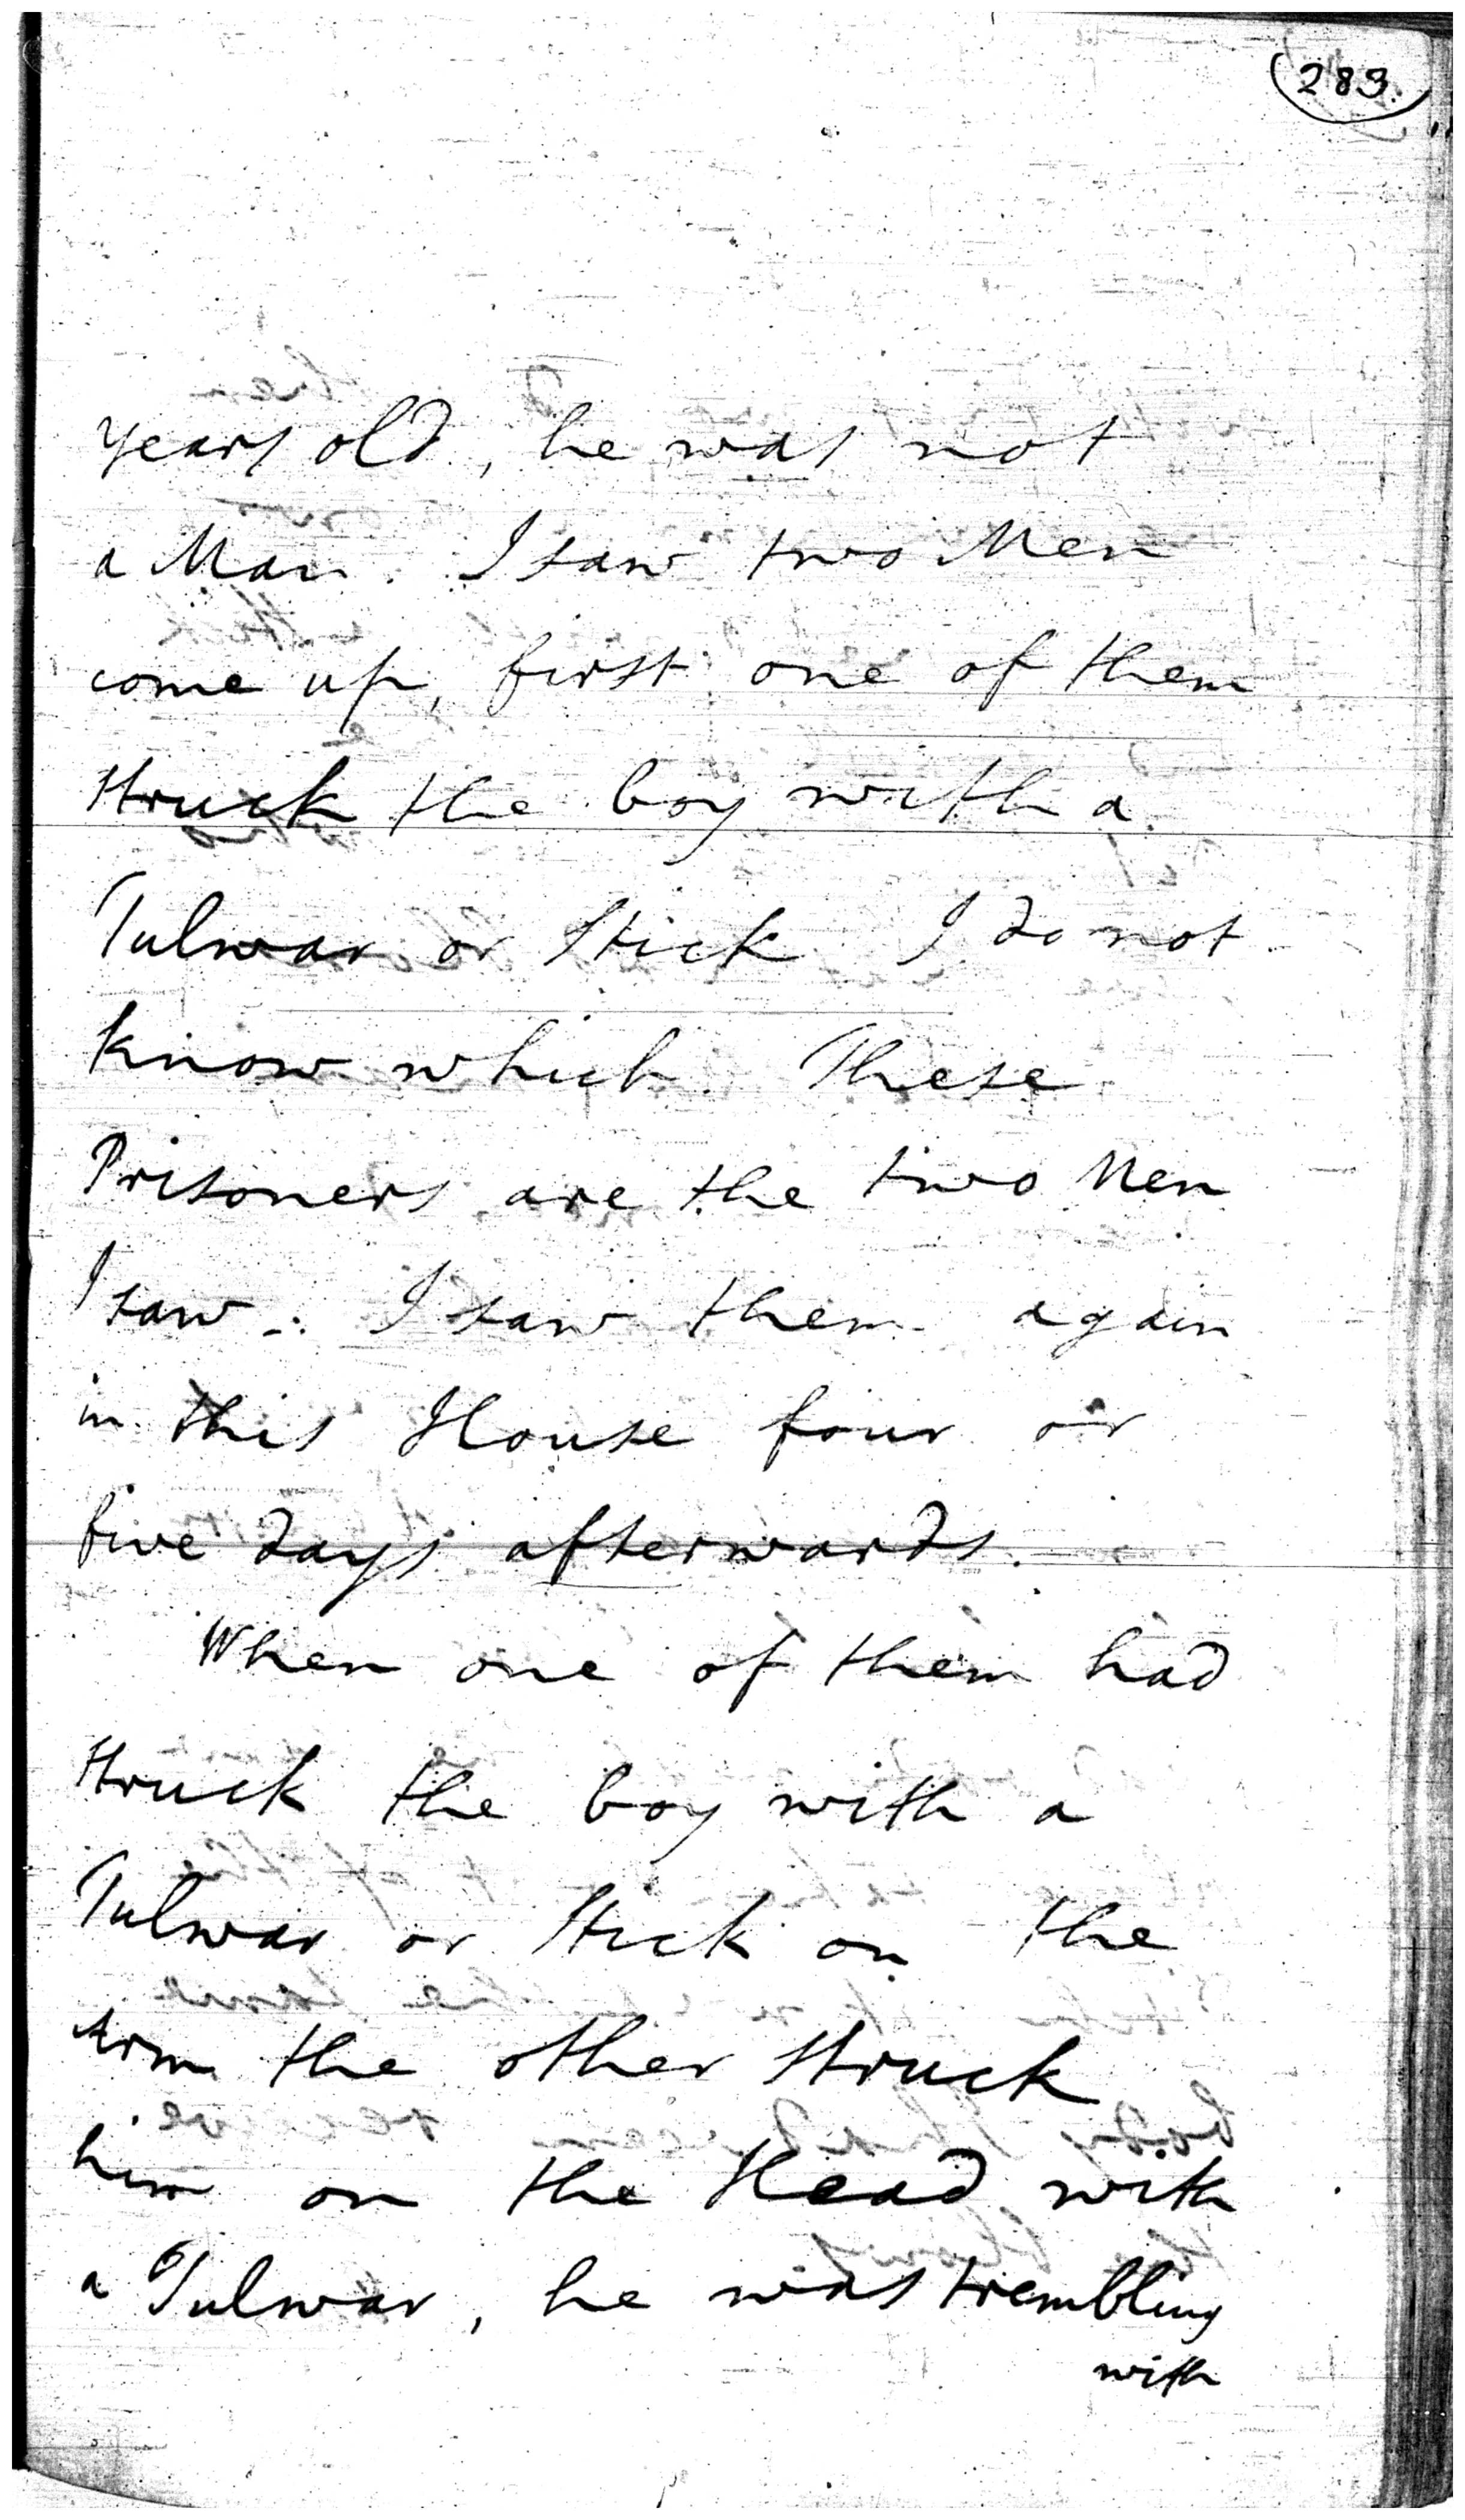 (283.)
years old, he was not
a Man. I saw two Men
come up, first one of them
struck the boy with a
Tulwar or Stick I do not
know which. These
Prisoners are the two Men
I saw. I saw them again
in this House four or
five days afterwards.
When one of them had
struck the boy with a
Tulwar or Stick on the
Arm the other struck
him on the Head with
a Tulwar, he was trembling
with